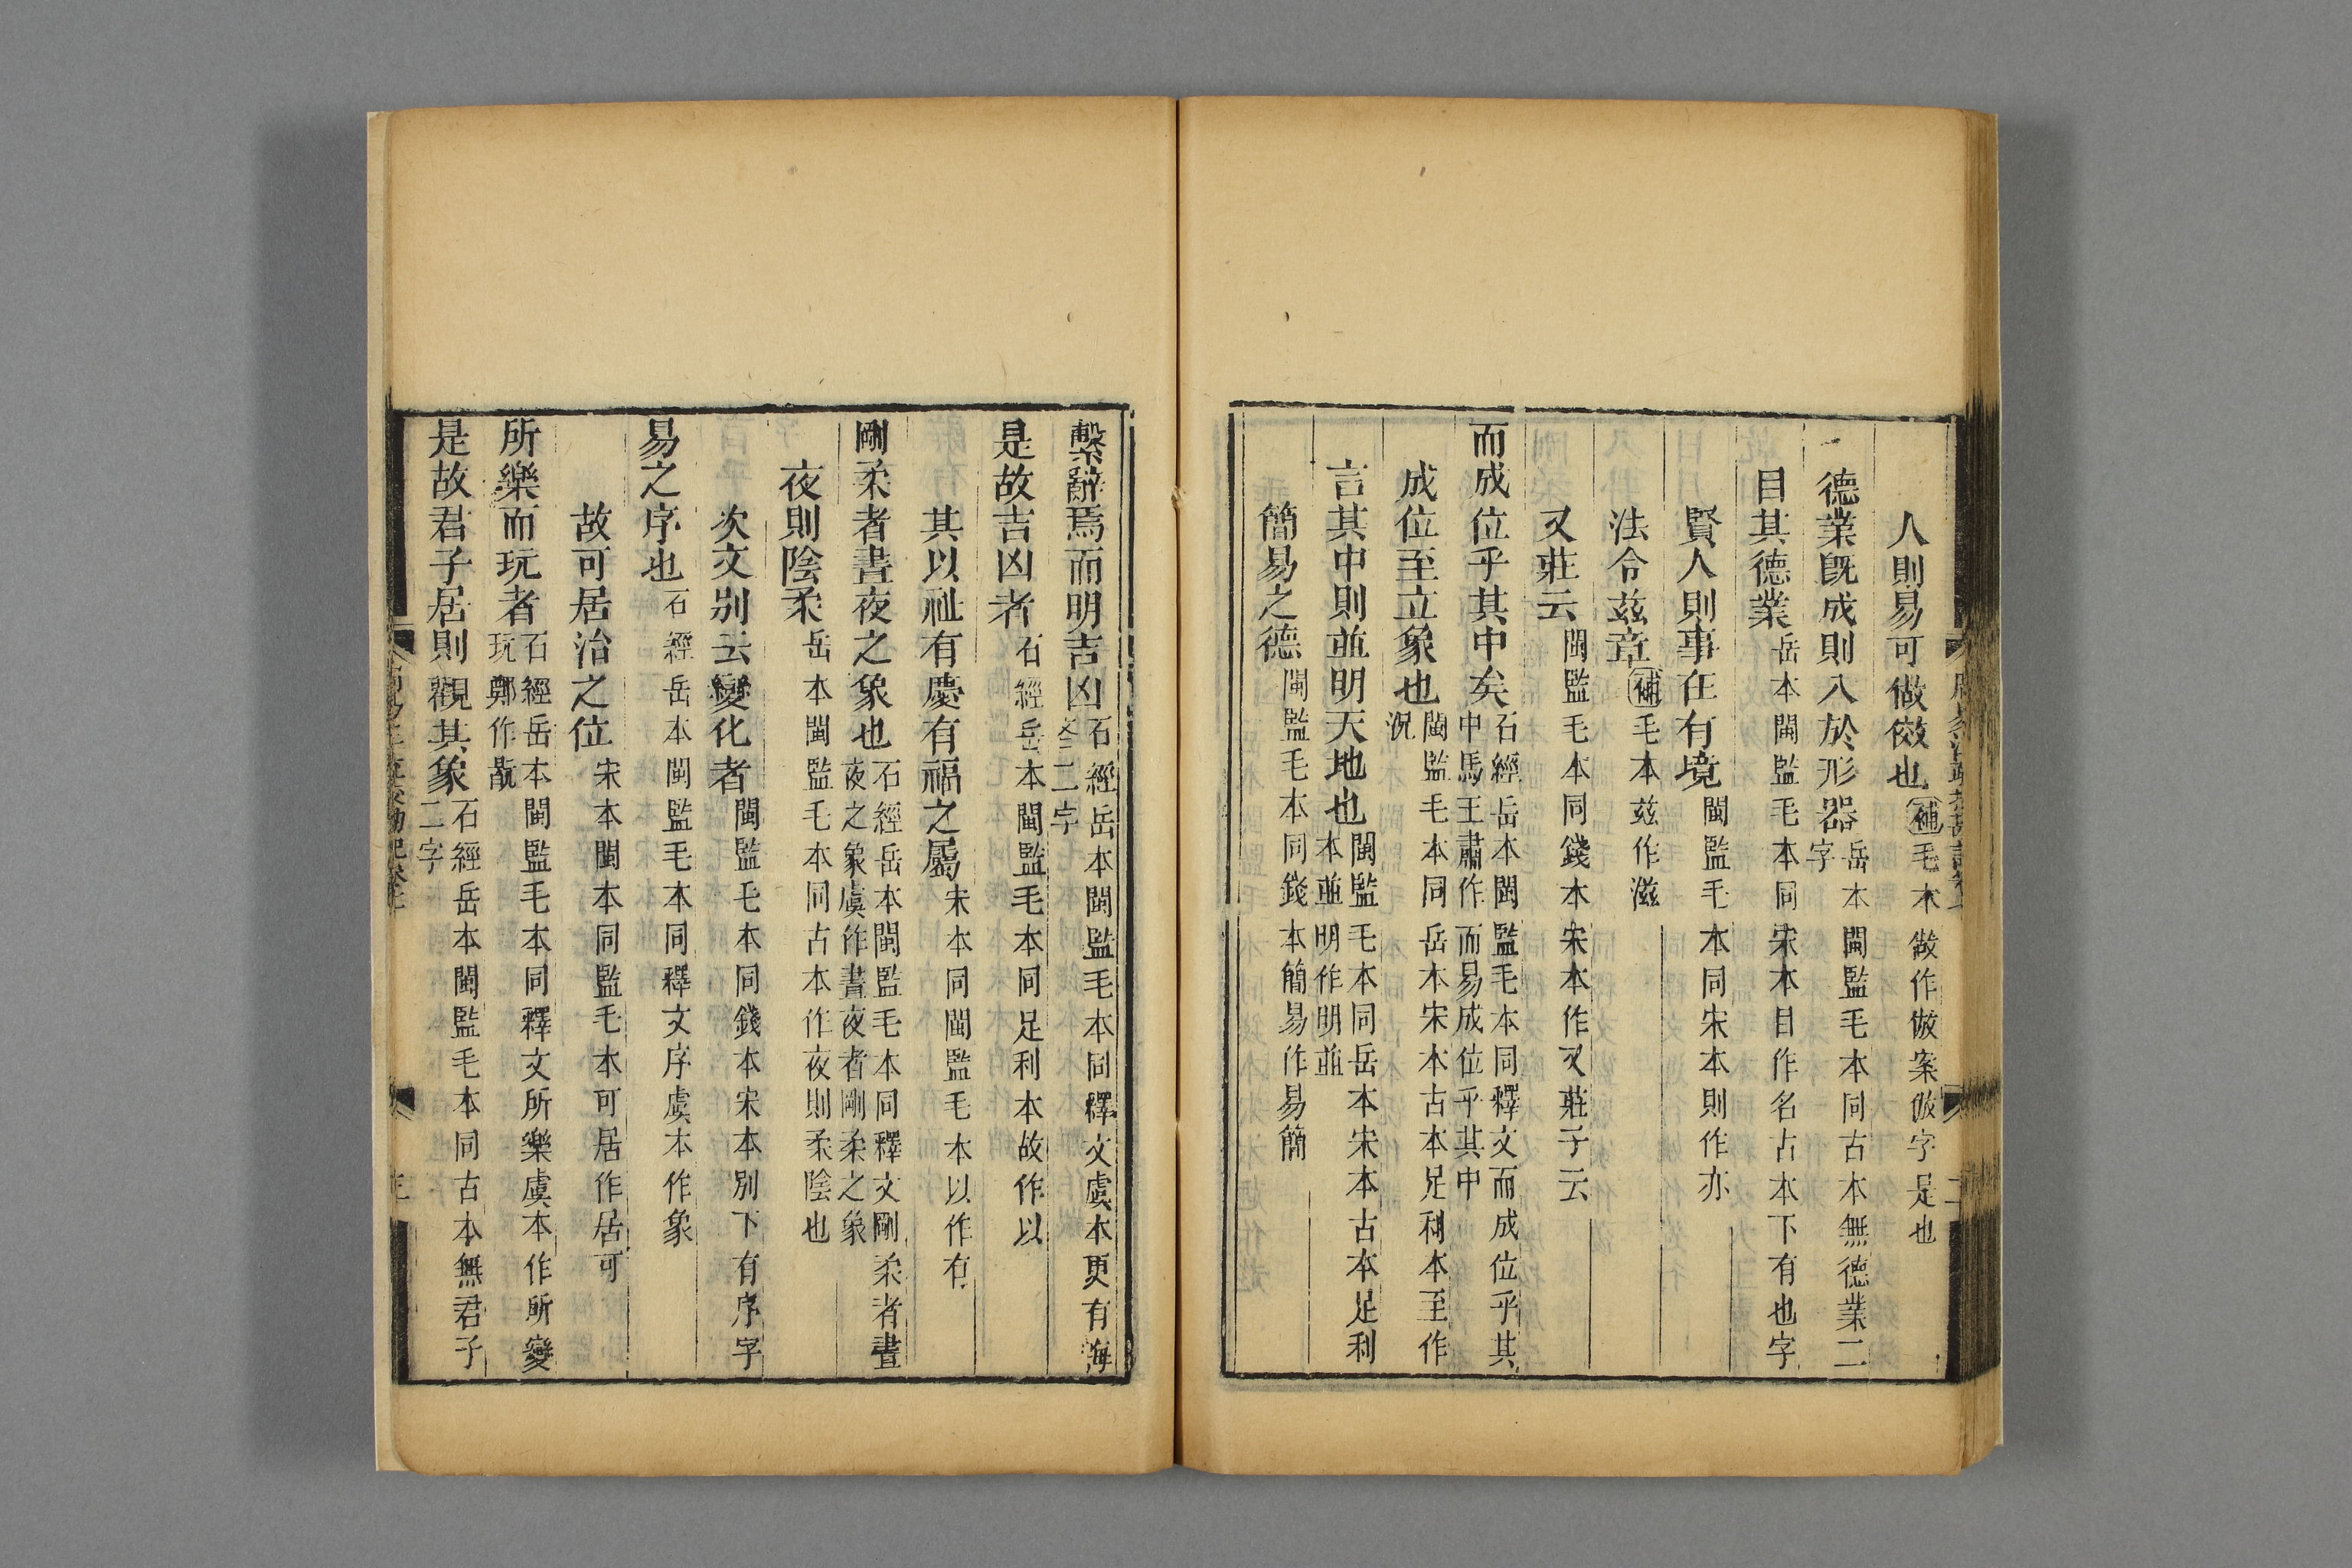 人則易可倣傚也補毛本倣作倣案倣字是也
德業旣成則入於形器岳本閩監毛本同古本無德業二字
目其德業岳本閩監毛本同宋本目作名古本下有也字
賢人則事在有境閩監毛本同宋本則作亦
法令茲章補毛本茲作滋
又莊云閩監毛本同錢本宋本作又莊子云
而成位乎其中矣石經岳本閩監毛本同釋文而成位乎其中馬王肅作而易成位乎其中
成位至立象也閩監毛本同岳本宋本古本足利本至作況
言其中則並明天地也閩監毛本同岳本宋本古本足利本並明作明並
簡易之德閩監毛本同錢本簡易作易簡
繫辭焉而明吉凶石經岳本閩監毛本同釋文虞本更有悔吝二字
是故吉凶者石經岳本閩監毛本同足利本故作以
其以祉有慶有福之屬宋本同閩監毛本以作有
剛柔者晝夜之象也石經岳本閩監毛本同釋文剛柔者晝夜之象虞作晝夜者剛柔之象
夜則陰柔岳本閩監毛本同古本作夜則柔陰也
次文別云變化者閩監毛本同錢本宋本別下有序字
易之序也石經岳本閩監毛本同釋文序虞本作象
故可居治之位宋本閩本同監毛本可居作居可
所樂而玩者石經岳本閩監毛本同釋文所樂虞本作所變玩鄭作翫
是故君子居則觀其象石經岳本閩監毛本同古本無君子二字